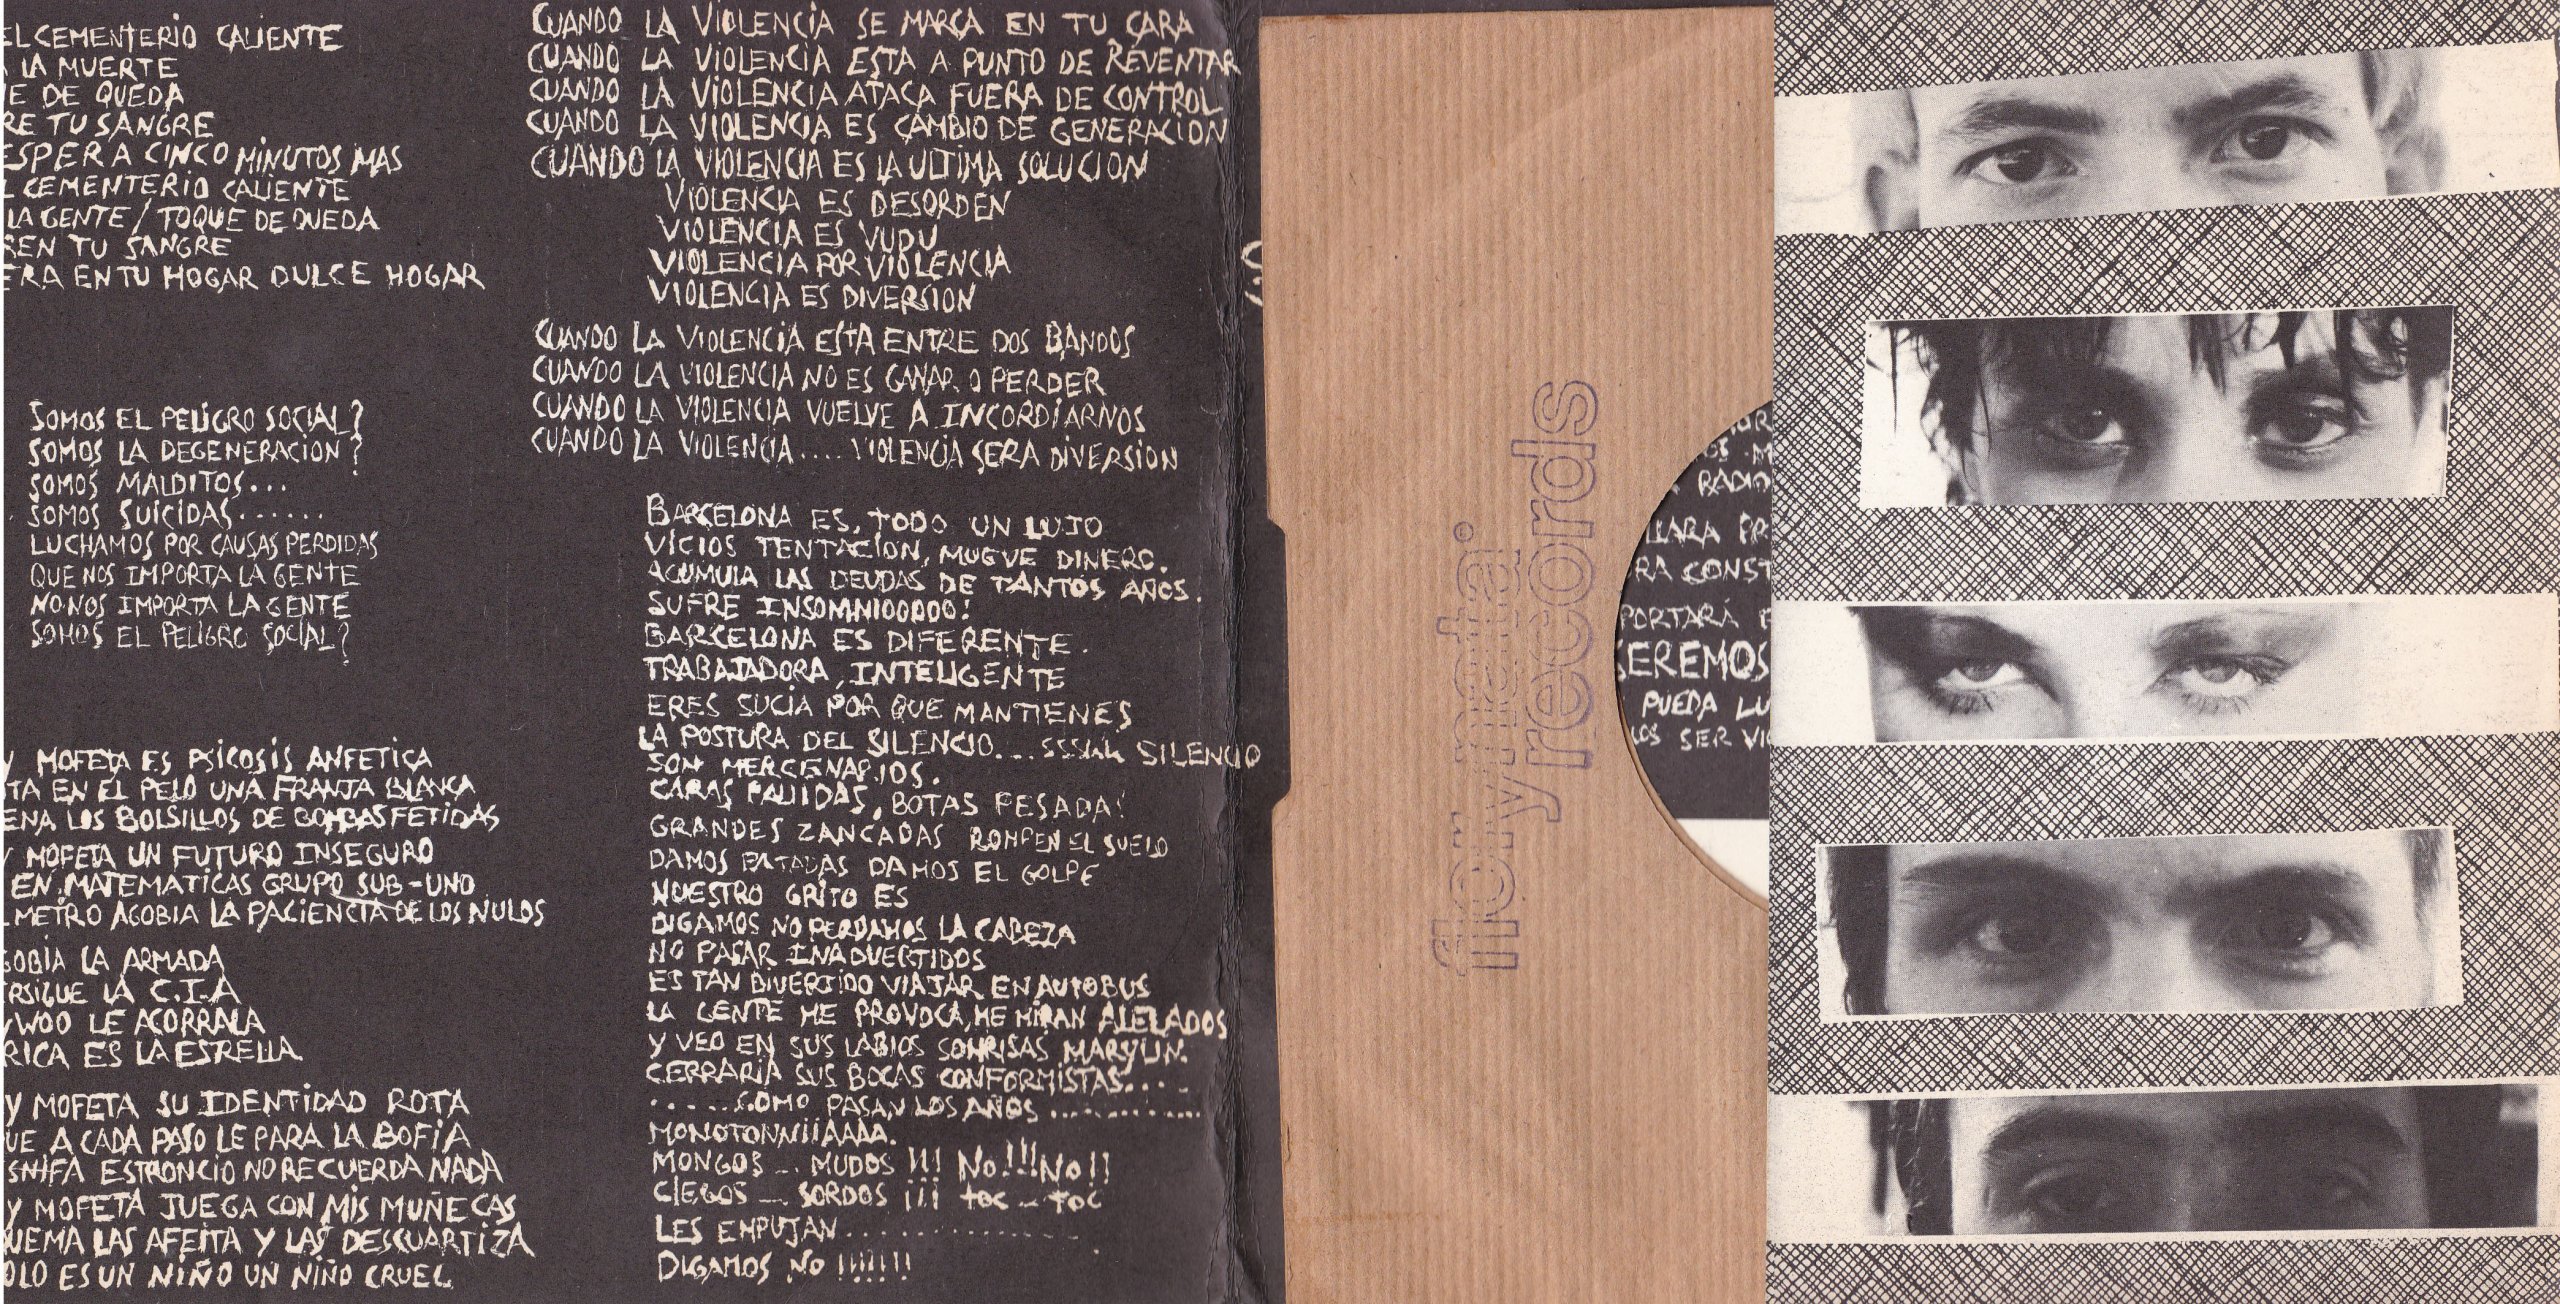 EL CEMENTERIO CALIENTE
LA MUERTE
E DE QUEDA
RE TU SANGRE
ESPERA CINCO MINUTOS MAS
L CEMENTERIO CALIENTE
LA GENTE / TOQUE DE QUEDA
REN TU SANGRE
ERA EN TU HOGAR DULCE HOGAR
SOMOS EL PELIGRO SOCIAL?
SOMOS LA DEGENERACION?
SOMOS MALDITOS...
SOMOS SUICIDAS......
LUCHAMOS POR CAUSAS PERDIDAS
QUE NOS IMPORTA LA GENTE
NO NOS IMPORTA LA GENTE
SOMOS EL PELIGRO SOCIAL?
Y MOFETA ES PSICOSIS ANFETICA
TA EN EL PELO UNA FRANJA BLANCA
ENA LOS BOLSILLOS DE BOMBAS FETIDAS
Y MOFETA UN FUTURO INSEGURO
EN MATEMATICAS GRUPO SUB-UNO
L METRO AGOBIA LA PACIENCIA DE LOS NULOS
GOBIA LA ARMADA
RSIGUE LA C.I.A
YWOO LE ACORRALA
RICA ES LA ESTRELLA
Y MOFETA SU IDENTIDAD ROTA
UE A CADA PASO LE PARA LA BOFIA
SNIFA ESTRONCIO NO RECUERDA NADA
Y MOFETA JUEGA CON MIS MUÑECAS
UEMA LAS AFEITA Y LAS DESCUARTIZA
OLO ES UN NIÑO UN NIÑO CRUEL
CUANDO LA VIOLENCIA SE MARCA EN TU CARA
CUANDO LA VIOLENCIA ESTA A PUNTO DE REVENTAR
CUANDO LA VIOLENCIA ATACA FUERA DE CONTROL
CUANDO LA VIOLENCIA ES CAMBIO DE GENERACION
CUANDO LA VIOLENCIA ES LA ULTIMA SOLUCION
VIOLENCIA ES DESORDEN
VIOLENCIA ES VUDU
VIOLENCIA POR VIOLENCIA
VIOLENCIA ES DIVERSION
CUANDO LA VIOLENCIA ESTA ENTRE DOS BANDOS
CUANDO LA VIOLENCIA NO ES GANAR O PERDER
CUANDO LA VIOLENCIA VUELVE A INCORDIARNOS
CUANDO LA VIOLENCIA.... VIOLENCIA SERA DIVERSION
BARCELONA ES, TODO UN LUJO
VICIOS TENTACION, MUEVE DINERO.
ACUMULA LAS DEUDAS DE TANTOS AÑOS.
SUFRE INSOMNIOOOOO!
BARCELONA ES DIFERENTE.
TRABAJADORA, INTELIGENTE
ERES SUCIA POR QUE MANTIENES
LA POSTURA DEL SILENCIO... SSSHHH SILENCIO
SON MERCENARIOS.
CARAS PALIDAS, BOTAS PESADAS
GRANDES ZANCADAS ROMPEN EL SUELO
DAMOS PATADAS DAMOS EL GOLPE
NUESTRO GRITO ES
DIGAMOS NO PERDAMOS LA CABEZA
NO PASAR INADVERTIDOS
ES TAN DIVERTIDO VIAJAR EN AUTOBUS
LA GENTE ME PROVOCA, ME MIRAN ALELADOS
Y VEO EN SUS LABIOS SONRISAS MARYLIN.
CERRARIA SUS BOCAS CONFORMISTAS....
......COMO PASAN LOS AÑOS............
MONOTONNIIAAAA.
MONGOS ... MUDOS !!! NO!!! NO!!
CIEGOS ... SORDOS ¡¡¡ TOC - TOC
LES EMPUJAN..............
DIGAMOS NO !!!!!!
flor y nata®
records
UR
OS M
RADIO
LARA PR
RA CONST
PORTARÁ E
SEREMOS
PUEDA LU
LOS SER VI